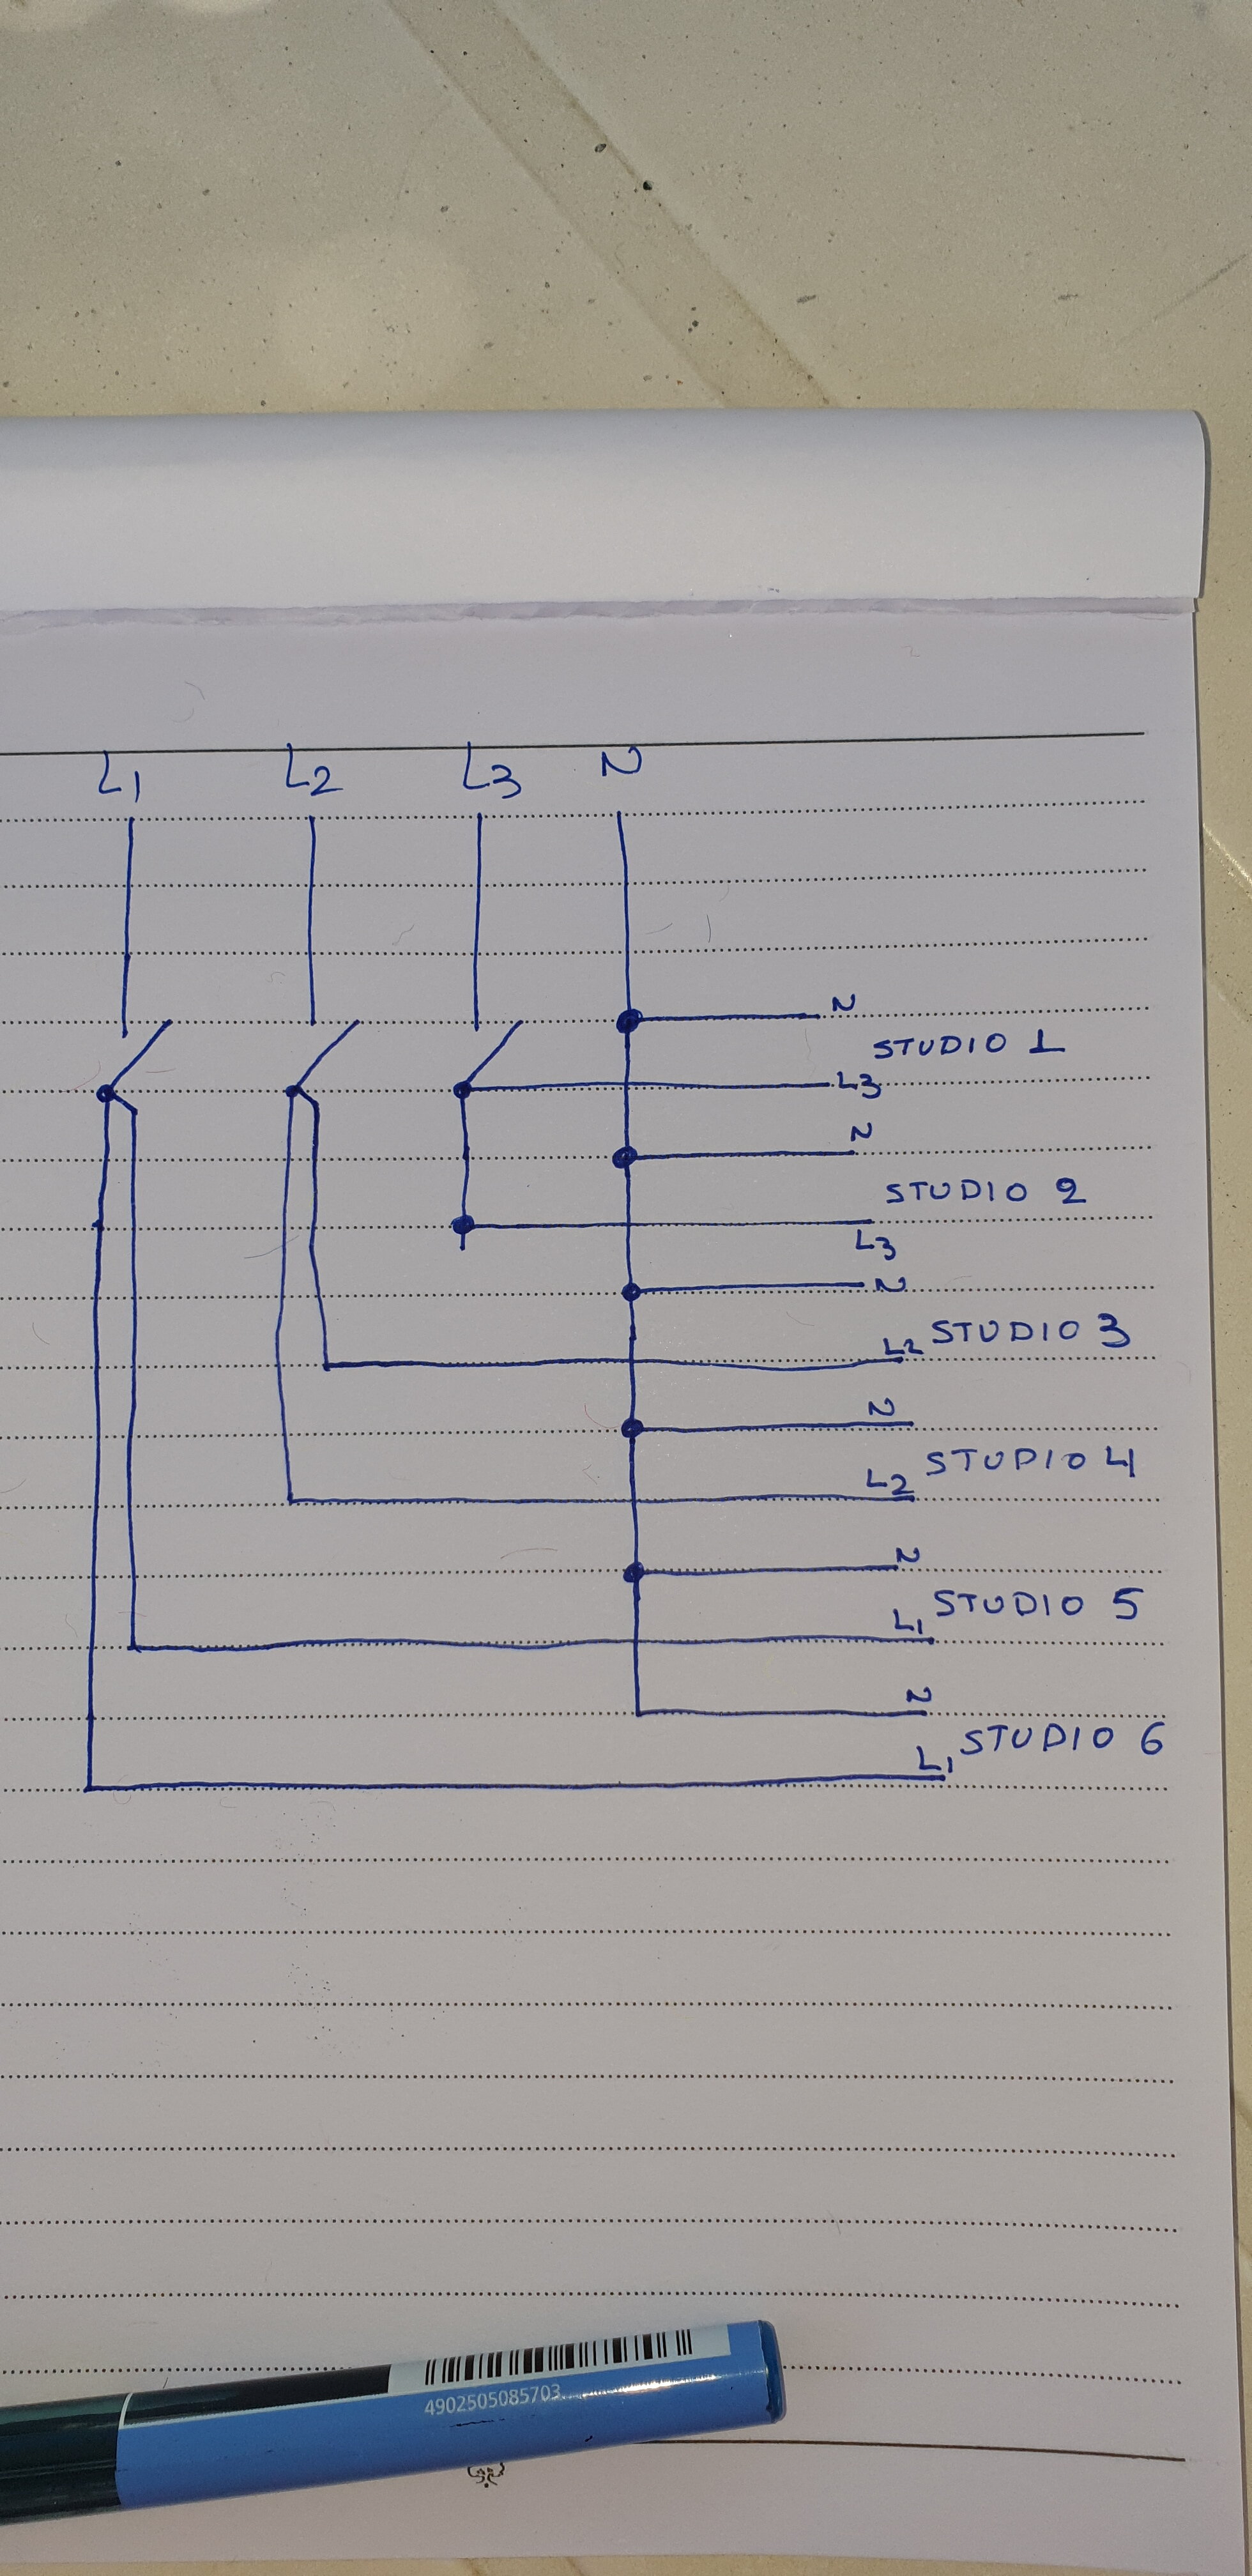 L1 L2 L3 N
N
STUDIO 1
L3
N
STUDIO 2
L3
N
STUDIO 3
L2
N
STUDIO 4
L2
N
STUDIO 5
L1
N
STUDIO 6
L1
4902505085703